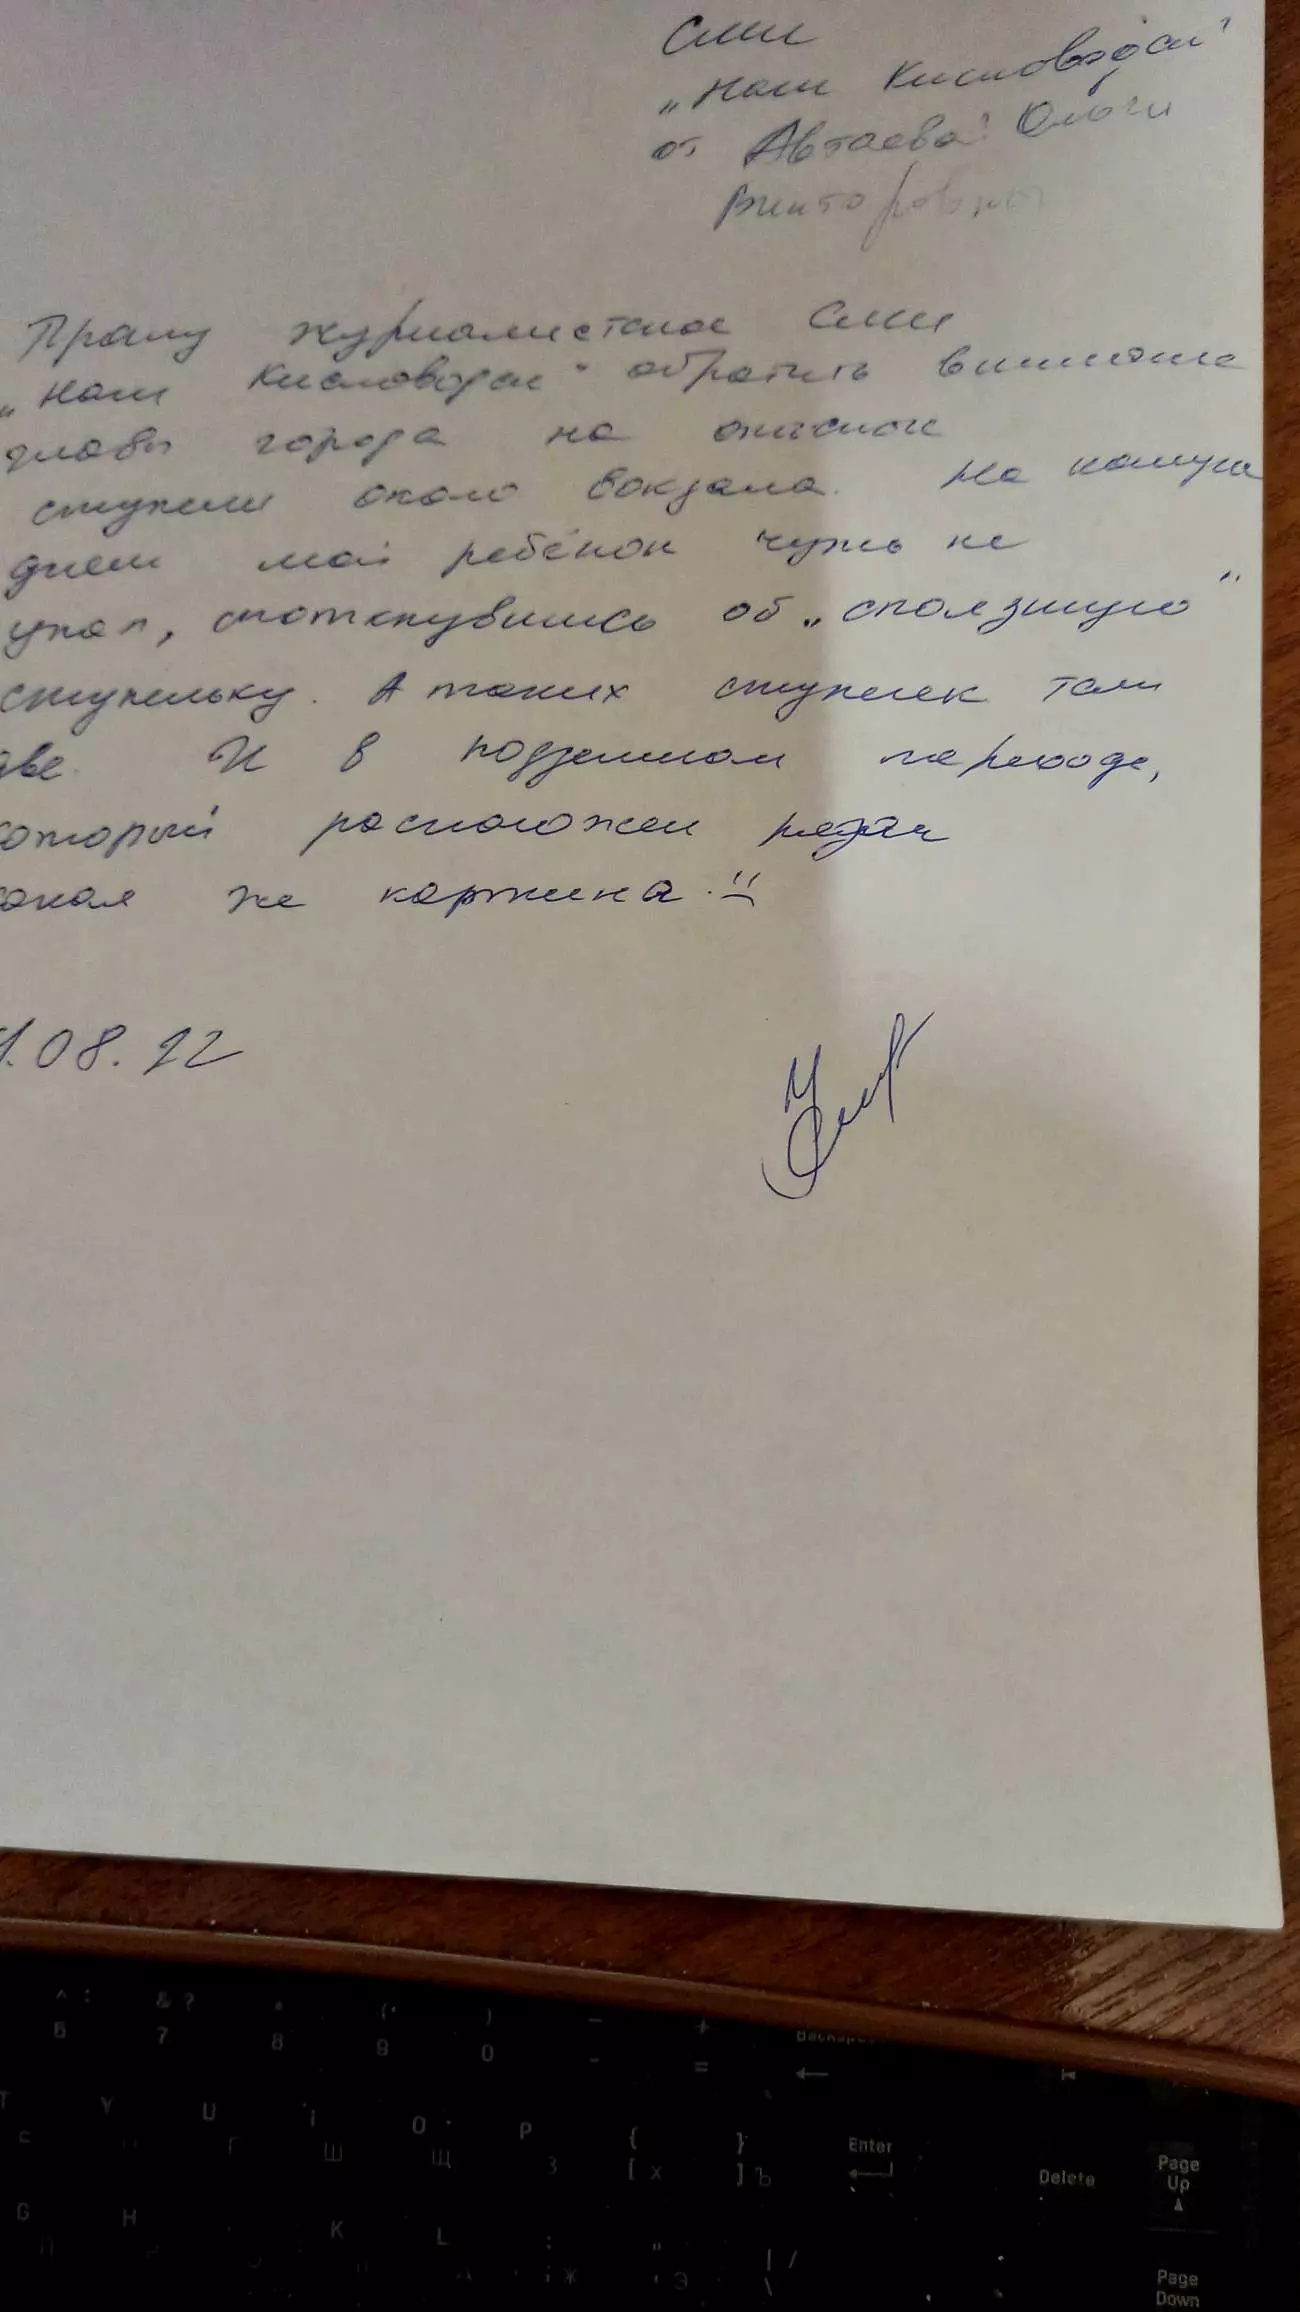 СМИ
„Наш Кисловодск"
от Автаевой Ольги
Викторовны
Прошу журналистов СМИ
„Наш Кисловодск" обратить внимание
главы города на опасные
ступени около вокзала. На
днем мой ребёнок чуть не
упал, споткнувшись об „сползшую"
ступельку. А таких ступенек там
две. И в подземном переходе,
который расположен рядом
такая же картина.
1.08.22
^ : & ? * ( ) _ + Backspace
6 7 8 9 0 - =
T Y U I O P { } Enter
Г Ш Щ З [ Х ] Ъ Delete Page Up
G H K L : " | /
; Ж ' Э \ Page Down